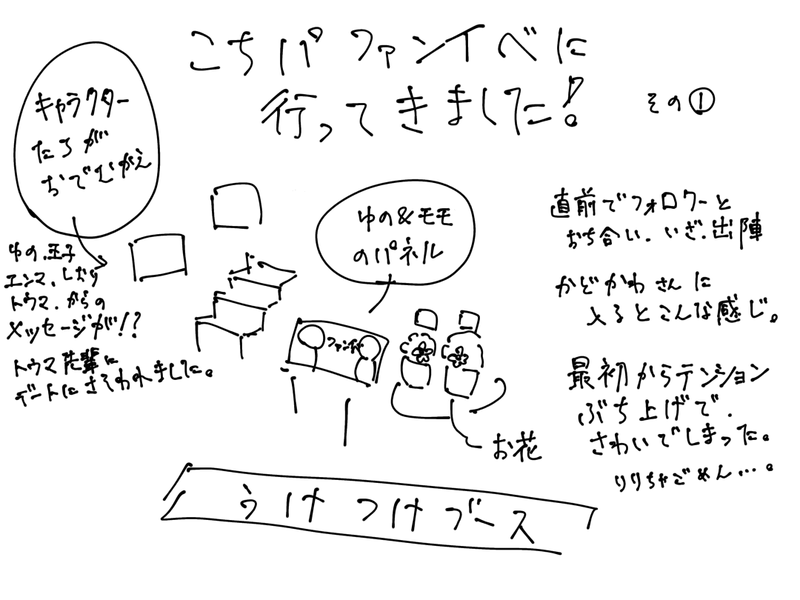 こちパ ファンイベに
行ってきました!
その①
キャラクター
たちが
おでむかえ
ゆの.王子
エンマ.しおり
トウマ.からの
メッセージが!?
トウマ先輩に
デートにさそわれました。
ゆの&モモ
のパネル
ファンイベ
お花
うけつけブース
直前でフォロワーと
おち合い.いざ.出陣
かどかわさんに
入るとこんな感じ。
最初からテンション
ぶち上げで.
さわいでしまった。
りりちゃごめん...。